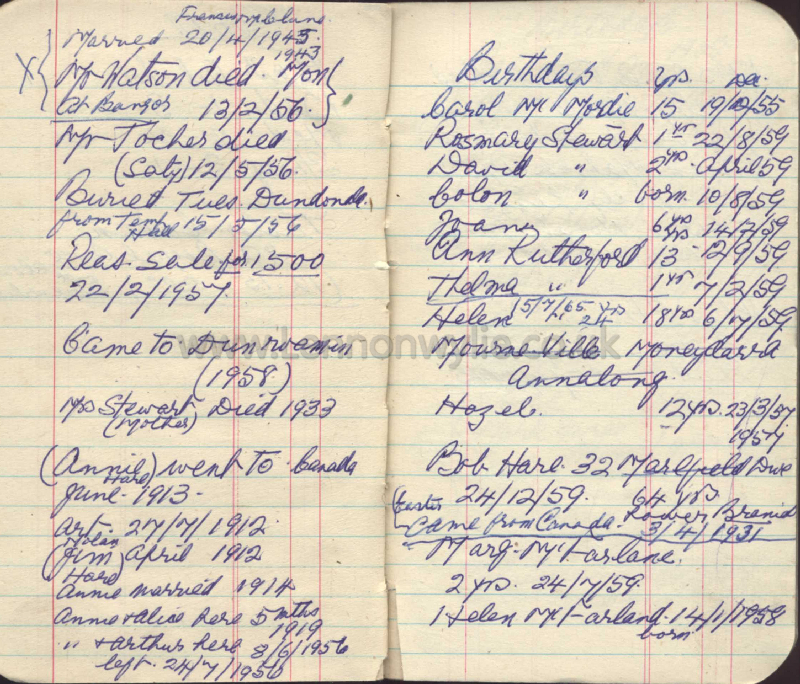 Married 20/4/1945.
1943
X Mr Watson died Mon
At Bangor 13/2/56.
Mr Tocher died
(Saty) 12/5/56.
Buried Tues. Dundonda.
from Temp Hall 15/5/56
Reas. Sale for 1500
22/2/1957.
Came to Dunroamin
(1958)
Mrs Stewart Died 1933
(Mother)
(Annie) went to Canada
Hare
June 1913 -
Art 27/7/1912
Nolan
(Jim) April 1912
Hare
Annie married 1914
Anna + Alice here 5 mths
1919
" + arthur here 8/6/1956
left 24/7/1956
Birthdays yrs.
Carol Mc Mordie 15 19/12/55
Rosmary Stewart 1 yr 22/8/59
David " 2 yrs April 59
Colon " born 10/8/59
Joany 6 yrs 14/7/59
Ann Rutherford 13 yrs 12/9/59
Thelma " 1 yr 7/2/59
Helen 15/7/65 24 yrs 18 yrs 6/7/59
Mourne View Moneydarra
Annalong.
Hazel. 12 yrs. 23/3/57
1957
Bob Hare 32 Marlfield Drive
24/12/59. 64 yrs.
(Easter Lower Braniel
Came from Canada. 3/4/1931
Marg. McFarlane.
2 yrs. 24/7/59.
Helen McFarland 14/1/1958
born
www.Lennonwylie.co.uk